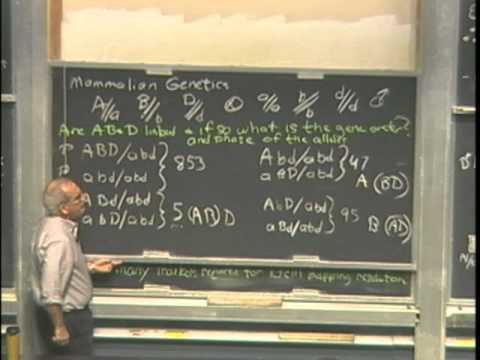 Mammalian Genetics
A/a B/b D/d ♀ a/a b/b d/d ♂
Are AB&D linked & if so what is the gene order?
and phase of the alleles
ABD/abd
abd/abd } 853
Abd/abd
aBD/abd } 47
A (BD)
ABd/abd
abD/abd } 5 (AB) D
AbD/abd
aBd/abd } 95
B (AD)
many markers required for 1cM mapping resolution